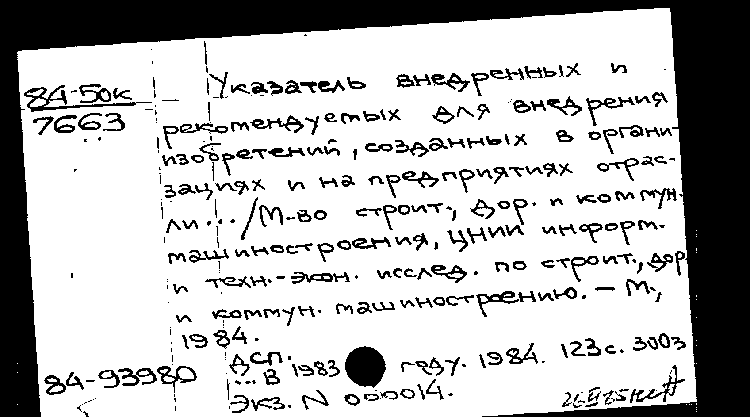 84-50к
7663
Указатель внедренных и
рекомендуемых для внедрения
изобретений, созданных в органи-
зациях и на предприятиях отрас-
ли.../М-во строит., дор. и коммун.
машиностроения, ЦНИИ информ.
и техн.-экон. исслед. по строит., дор.
и коммун. машиностроению. — М.,
1984.
ДСП.
84-93980
... В 1983 году. 1984. 123 с. 300э
Экз. N 000014.